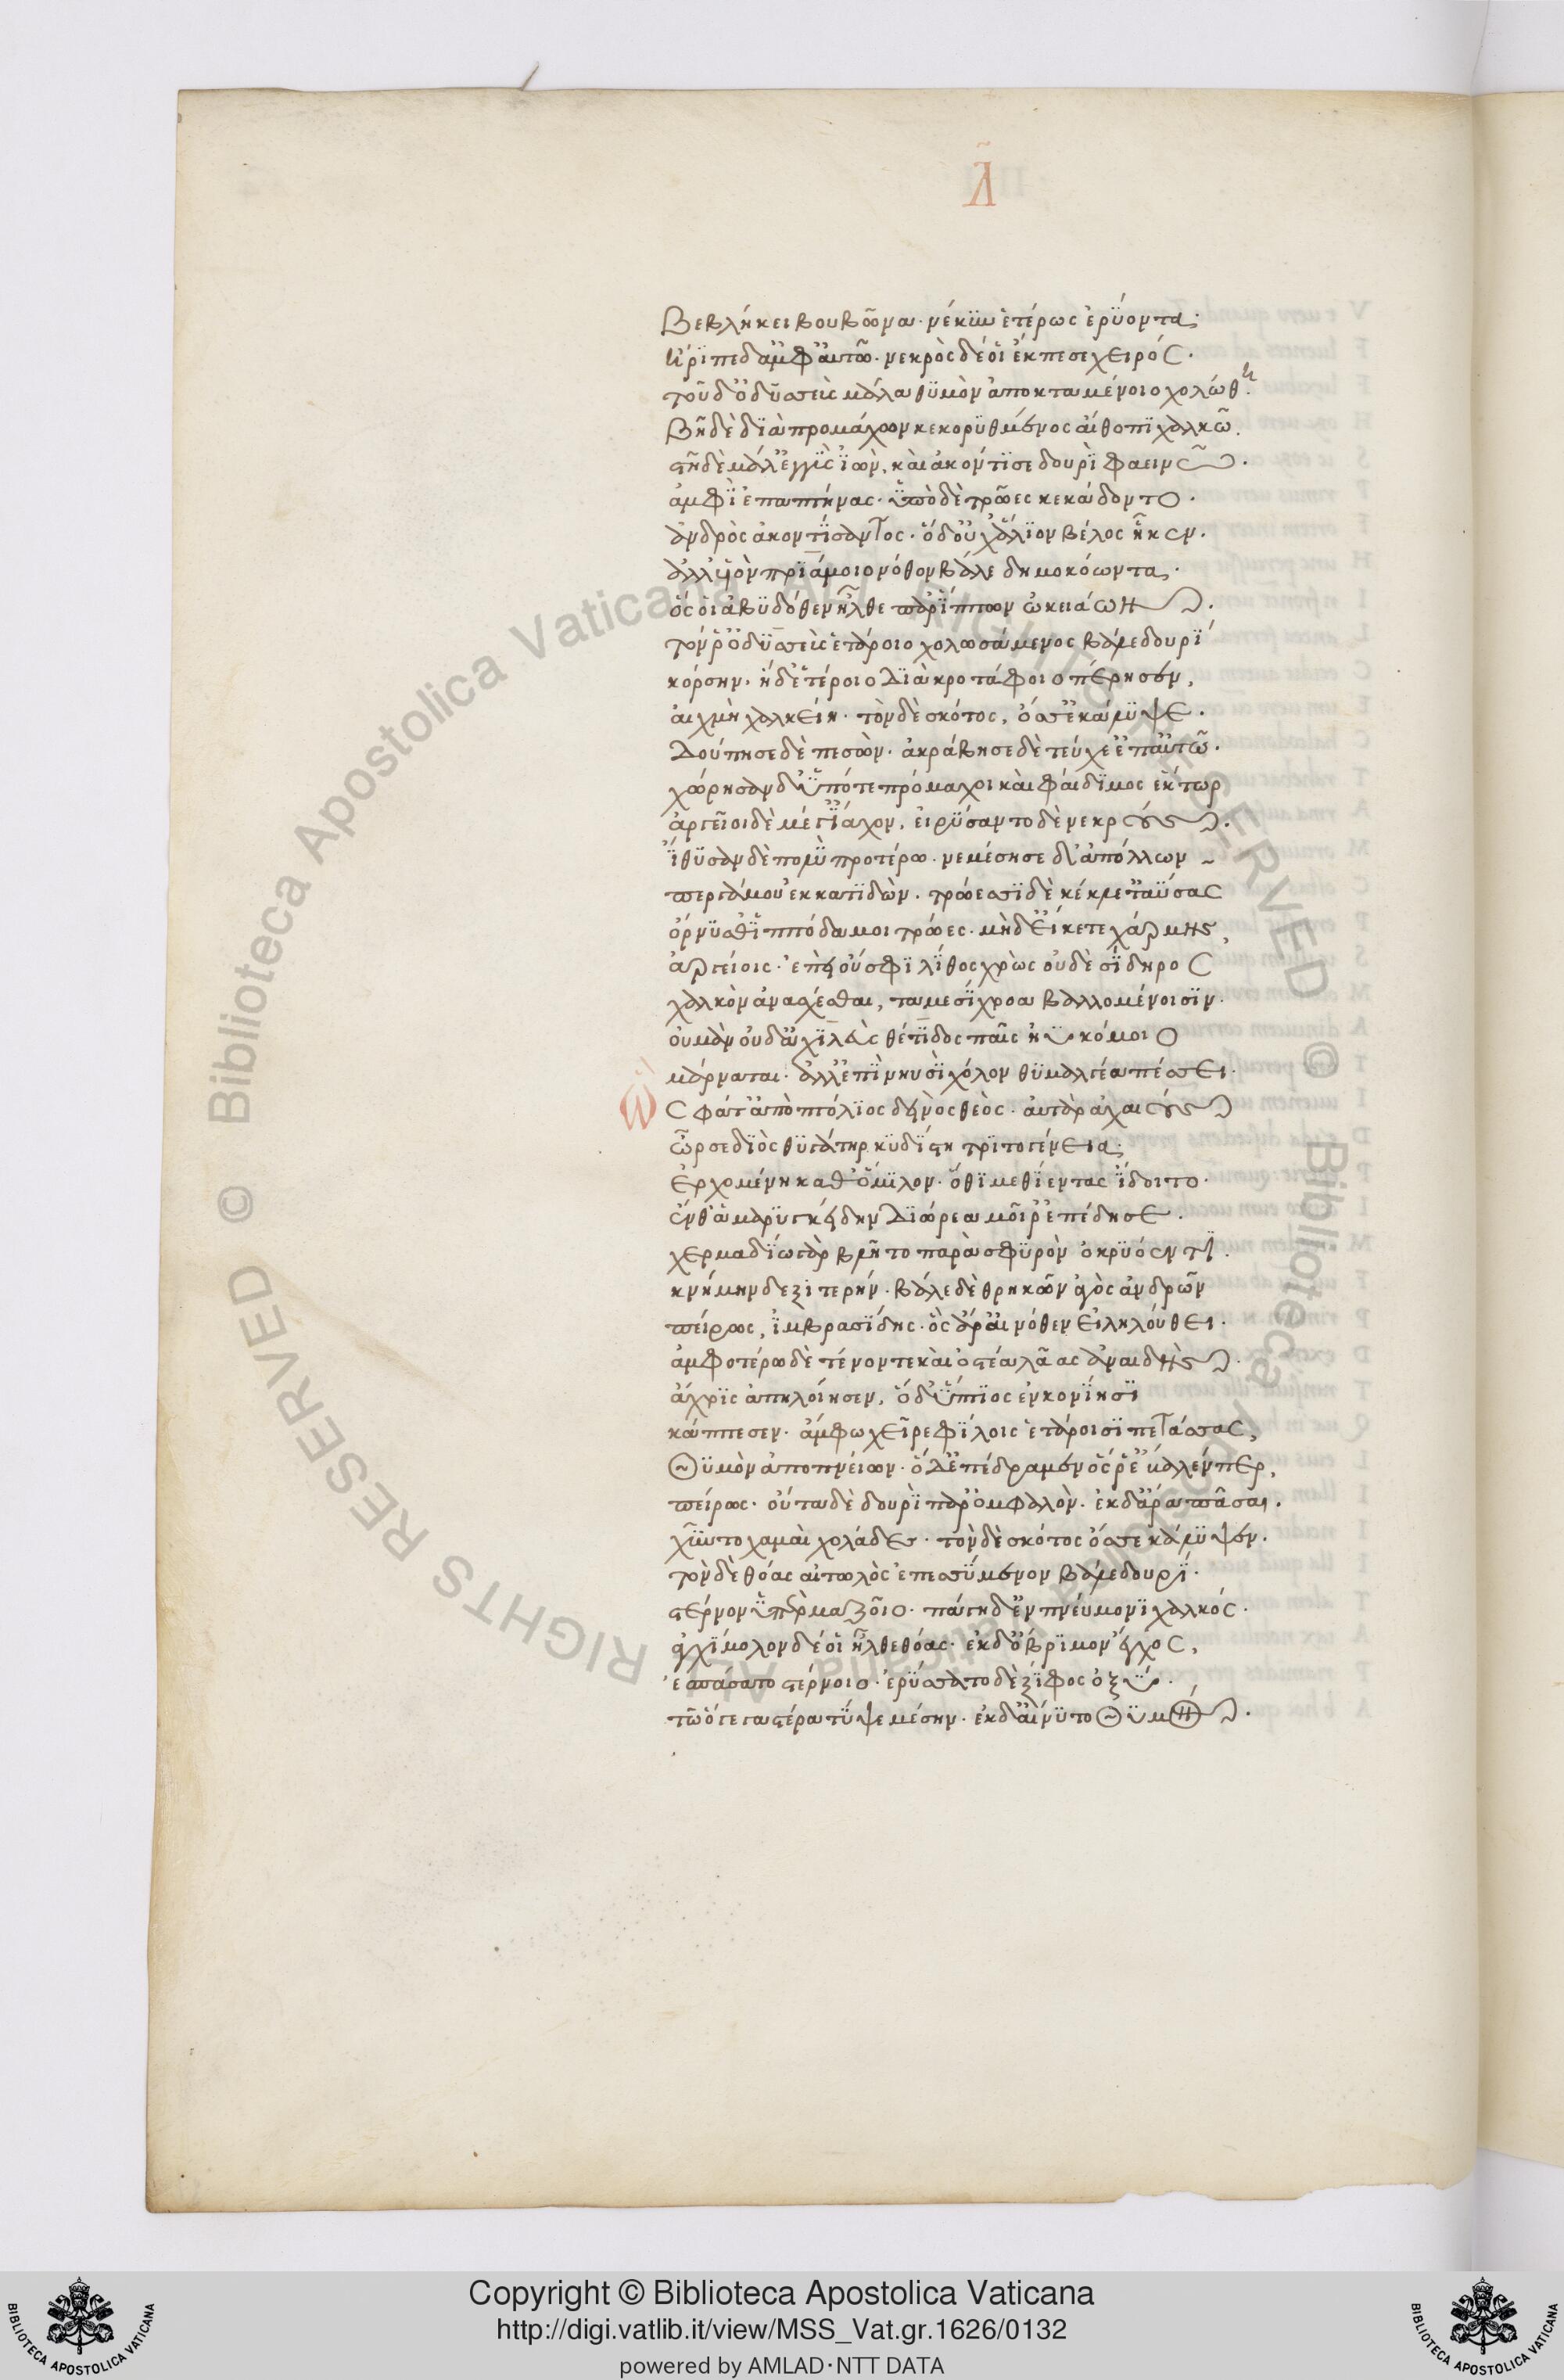 Δ̃
Βεβλήκει βουβῶνα· νέκυν ἑτέρωσ' ἐρύοντα·
ἤριπε δ' ἀμφ' αὐτῶ· νεκρὸς δέ οἱ ἔκπεσε χειρός.
τοῦ δ' ὀδυσεὺς μάλα θυμὸν ἀποκταμένοιο χολώθη.
βῆ δὲ διὰ προμάχων κεκορυθμένος αἴθοπι χαλκῶ.
στῆ δὲ μάλ' ἐγγὺς ἰὼν, καὶ ἀκόντισε δουρὶ φαεινῶ.
ἀμφὶ ἑ παπτήνας· ὑπὸ δὲ τρῶες κεκάδοντο.
ἀνδρὸς ἀκοντίσαντος· ὁ δ' οὐχ ἅλιον βέλος ἧκεν.
ἀλλ' υἱὸν πριάμοιο νόθον βάλε δημοκόωντα·
ὅς οἱ ἀβυδόθεν ἦλθε παρ' ἵππων ὠκειάων.
τόν ῥ' ὀδυσεὺς ἑτάροιο χολωσάμενος βάλε δουρί
κόρσην· ἡ δ' ἑτέροιο διὰ κροτάφοιο πέρησεν,
αἰχμὴ χαλκείη· τὸν δὲ σκότος, ὄσσ' ἐκάλυψε.
Δούπησε δὲ πεσὼν· ἀράβησε δὲ τεύχε' ἐπ' αὐτῶ.
χώρησαν δ' ὑπό τε πρόμαχοι καὶ φαίδιμος ἕκτωρ
ἀργεῖοι δὲ μέγ' ἴαχον, εἰρύσαντο δὲ νεκρούς.
ἴθυσαν δὲ πολὺ προτέρω· νεμέσησε δ' ἀπόλλων
περγάμου ἐκκατιδὼν· τρώεσσι δὲ κέκλετ' ἀΰσας
ὄρνυσθ' ἱππόδαμοι τρῶες· μὴ δ' εἴκετε χάρμης,
ἀργείοις· ἐπεὶ οὔ σφι λίθος χρὼς οὐδὲ σίδηρος
χαλκὸν ἀνασχέσθαι, ταμεσίχροα βαλλομένοισιν.
οὐ μὰν οὐδ' ἀχιλεὺς θέτιδος παῖς ἠυκόμοιο
μάρναται· ἀλλ' ἐπὶ νηυσὶ χόλον θυμαλγέα πέσσει.
Ὣς φάτ' ἀπὸ πτόλιος δεινὸς θεὸς· αὐτὰρ ἀχαιούς
ὦρσε διὸς θυγάτηρ κυδίστη τριτογένεια·
Ἐρχομένη καθ' ὅμιλον· ὅθι μεθιέντας ἴδοιτο.
ἔνθ' ἀμαρυγκείδην Διώρεα μοῖρ' ἐπέδησε.
χερμαδίω γὰρ βλῆτο παρὰ σφυρὸν ὀκρυόεντι.
κνήμην δεξιτερήν· βάλε δὲ θρηκῶν ἀγὸς ἀνδρῶν
πείρως, ἰμβρασίδης· ὃς ἄρ' αἰνόθεν εἰληλούθει.
ἀμφοτέρω δὲ τένοντε καὶ ὀστέα λᾶας ἀναιδής.
ἄχρις ἀπηλοίησεν, ὁ δ' ὕπτιος ἐν κονίῃσι
κάππεσεν· ἄμφω χεῖρε φίλοις ἑτάροισι πετάσσας,
Θυμὸν ἀποπνείων· ὁ Δ' ἐπέδραμεν ὅς ῥ' ἔβαλέν περ,
πείρως· οὖτα δὲ δουρὶ παρ' ὀμφαλὸν· ἐκ δ' ἄρα πᾶσαι.
χύντο χαμαὶ χολάδες· τὸν δὲ σκότος ὄσσε κάλυψεν.
τὸν δὲ θόας αἰτωλὸς ἐπεσσύμενον βάλε δουρί.
στέρνον ὑπὲρ μαζοῖο· πάγη δ' ἐν πνεύμονι χαλκός.
ἀγχίμολον δέ οἱ ἦλθε θόας· ἐκ δ' ὄβριμον ἔγχος,
ἐσπάσατο στέρνοιο· ἐρύσσατο δὲ ξίφος ὀξύ.
τῶ ὅγε γαστέρα τύψε μέσην· ἐκ δ' αἴνυτο Θυμόν.
Copyright © Biblioteca Apostolica Vaticana
http://digi.vatlib.it/view/MSS_Vat.gr.1626/0132
powered by AMLAD·NTT DATA
BIBLIOTECA APOSTOLICA VATICANA
BIBLIOTECA APOSTOLICA VATICANA
© Biblioteca Apostolica Vaticana ALL RIGHTS RESERVED
© Biblioteca Apostolica Vaticana ALL RIGHTS RESERVED